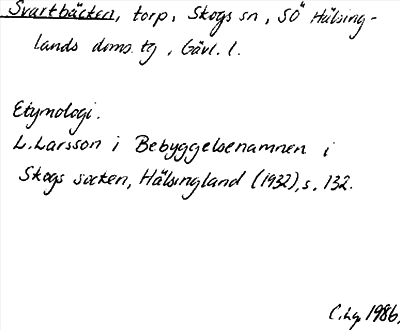 Svartbäcken, torp, Skogs sn, SÖ Hälsing-
lands doms. tg, Gävl. l.
Etymologi.
L. Larsson i Bebyggelsenamnen i
Skogs socken, Hälsingland (1932), s. 132.
1986.